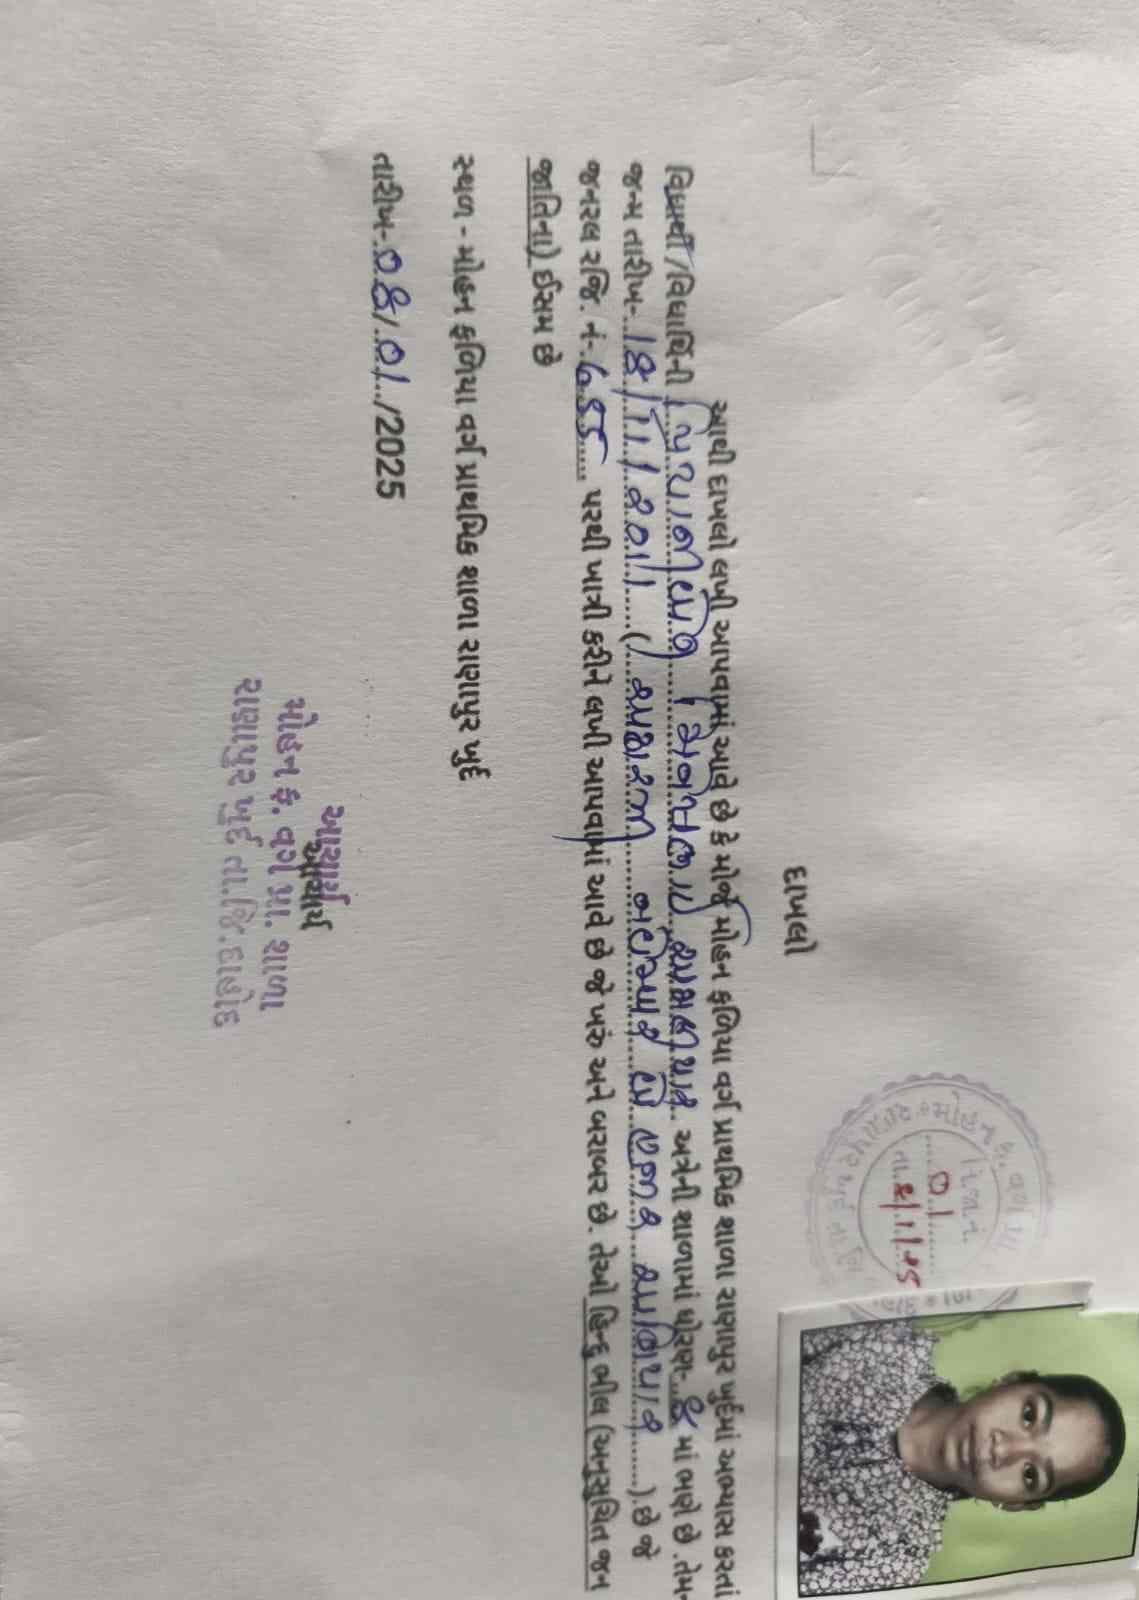 દાખલો
આથી દાખલો લખી આપવામાં આવે છે કે મોજે મોહન ફળિયા વર્ગ પ્રાથમિક શાળા રાણાપુર ખુર્દમાં અભ્યાસ કરતાં
વિદ્યાર્થી/વિદ્યાર્થિની અત્રેની શાળામાં ધોરણ-.. માં ભણે છે .તેમ-
જન્મ તારીખ-..18/11/2011....( અઢાર નવેમ્બર બે હજાર અગિયાર ).છે જે
જનરલ રજિ. નં-.. પરથી ખાત્રી કરીને લખી આપવામાં આવે છે જે ખરુ અને બરાબર છે. તેઓ હિન્દુ ભીલ (અનુસુચિત જન
જાતિના) ઈસમ છે
સ્થળ - મોહન ફળિયા વર્ગ પ્રાથમિક શાળા રાણાપુર ખુર્દ
તારીખ-.08/.01../2025
આચાર્ય
આચાર્ય
મોહન ફ. વર્ગ પ્રા. શાળા
રાણાપુર ખુર્દ તા.જિ.દાહોદ
01